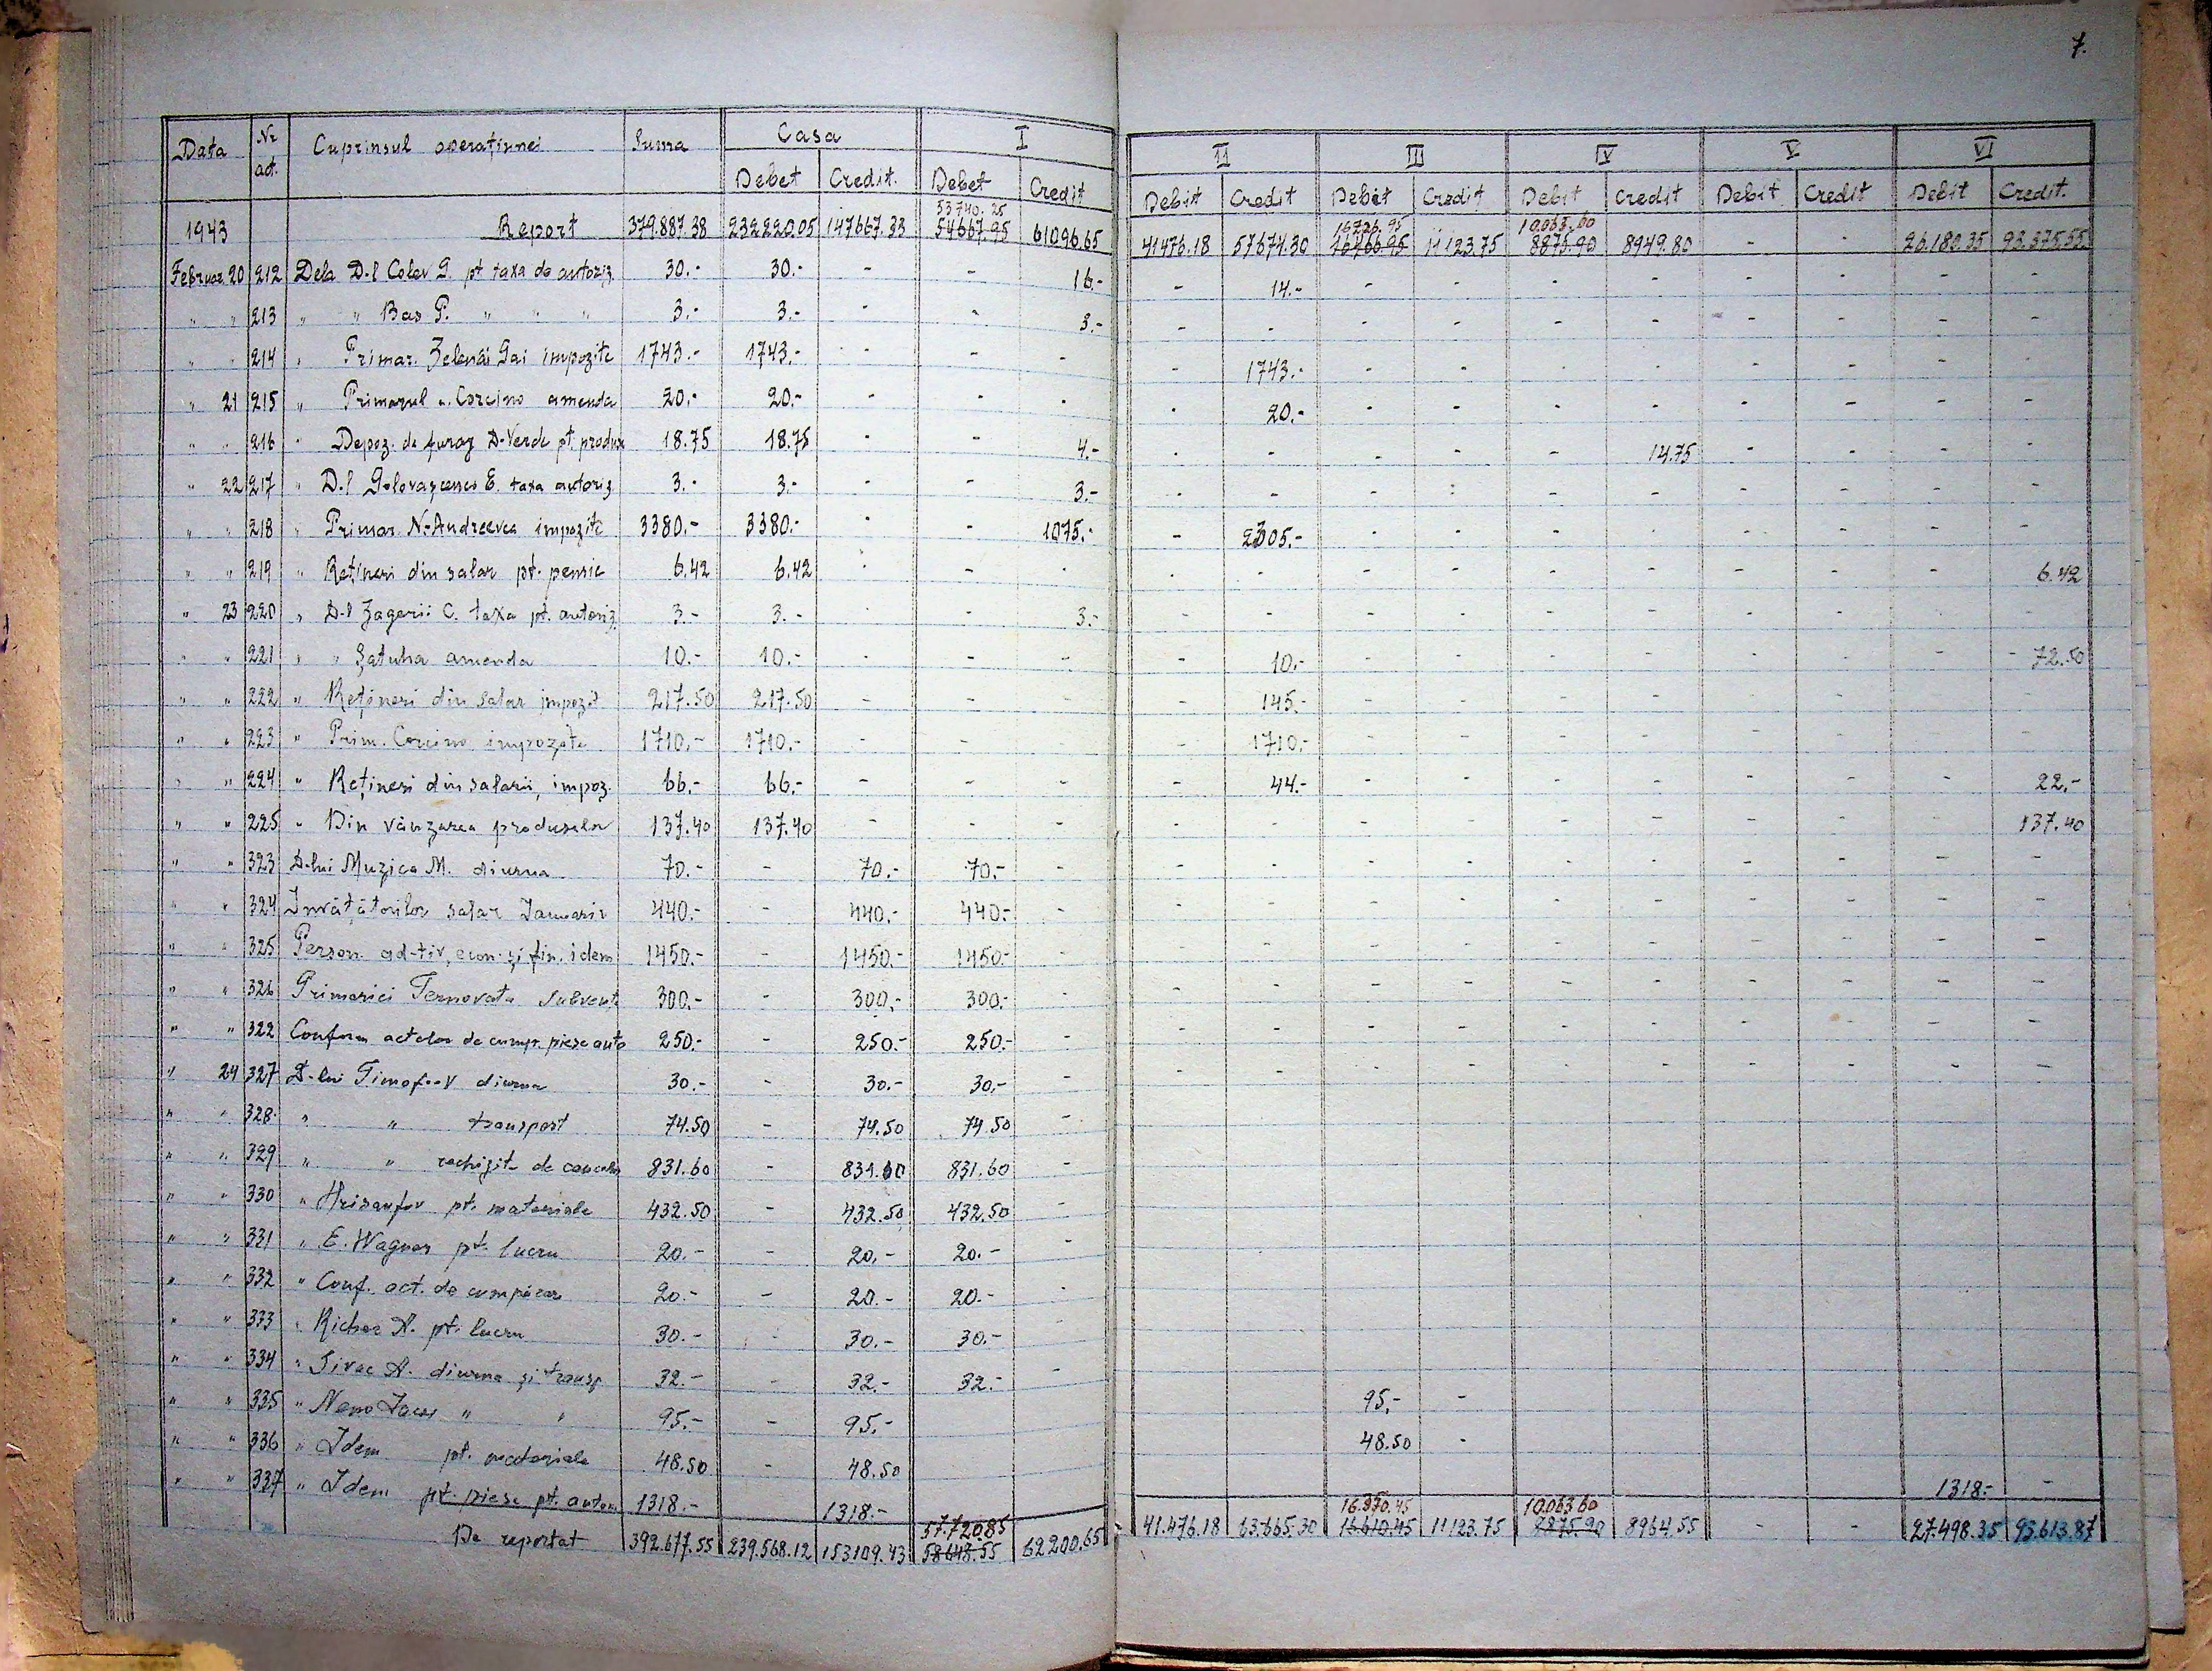 7.
Data | Nr. act. | Cuprinsul operațiunei | Suma | Casa | I | II | III | IV | V | VI
Debet | Credit. | Debet | Credit | Debit | Credit | Debit | Credit | Debit | Credit | Debit | Credit | Debit | Credit.
53740.25 | 16726.95 | 10.063.60
1943 | Report | 379.887.38 | 232220.05 | 147667.33 | 54667.95 | 61096.65 | 41476.18 | 57674.30 | 16466.95 | 11123.75 | 8875.90 | 8949.80 | - | - | 26.180.35 | 93.375.55
Februar. 20 | 212 | Dela D-l Colev G. pt taxa de autoriz. | 30.- | 30.- | - | - | 16.- | - | 14.- | - | - | - | - | - | - | - | -
" " | 213 | " " Bas P. " " " | 3.- | 3.- | - | - | 3.- | - | - | - | - | - | - | - | - | - | -
" " | 214 | " Primar. Zelenâi Gai impozite | 1743.- | 1743.- | - | - | - | - | 1743.- | - | - | - | - | - | - | - | -
" 21 | 215 | " Primarul c. Corcino amenda | 20.- | 20.- | - | - | - | - | 20.- | - | - | - | - | - | - | - | -
" " | 216 | " Depoz. de furaj D-Verde pt. produse | 18.75 | 18.75 | - | - | 4.- | - | - | - | - | - | 14.75 | - | - | - | -
" 22 | 217 | " D-l E. taxa autoriz. | 3.- | 3.- | - | - | 3.- | - | - | - | - | - | - | - | - | - | -
" " | 218 | " Primar. N-Andreevca impozite | 3380.- | 3380.- | - | - | 1075.- | - | 2305.- | - | - | - | - | - | - | - | -
" " | 219 | " Rețineri din salar pt. pensie | 6.42 | 6.42 | - | - | - | - | - | - | - | - | - | - | - | - | 6.42
" 23 | 220 | " D-l Zagorii C. taxa pt. autoriz. | 3.- | 3.- | - | - | 3.- | - | - | - | - | - | - | - | - | - | -
" " | 221 | " " Șatuha amenda | 10.- | 10.- | - | - | - | - | 10.- | - | - | - | - | - | - | - | 72.50
" " | 222 | " Rețineri din salar impozit | 217.50 | 217.50 | - | - | - | - | 145.- | - | - | - | - | - | - | -
" " | 223 | " Prim. Corcino impozite | 1710.- | 1710.- | - | - | - | - | 1710.- | - | - | - | - | - | - | - | -
" " | 224 | " Rețineri din salarii, impoz. | 66.- | 66.- | - | - | - | - | 44.- | - | - | - | - | - | - | - | 22.-
" " | 225 | " Din vânzarea produselor | 137.40 | 137.40 | - | - | - | - | - | - | - | - | - | - | - | - | 137.40
" " | 323 | D-lui Muzica M. diurna | 70.- | - | 70.- | 70.- | - | - | - | - | - | - | - | - | - | - | -
" " | 324 | Învățătorilor salar Ianuarie | 440.- | - | 440.- | 440.- | - | - | - | - | - | - | - | - | - | - | -
" " | 325 | Person. ad-tiv, econ. și fin. idem | 1450.- | - | 1450.- | 1450.- | - | - | - | - | - | - | - | - | - | - | -
" " | 326 | Primariei Ternovata subvenț. | 300.- | - | 300.- | 300.- | - | - | - | - | - | - | - | - | - | - | -
" " | 322 | Conform actelor de cumpr. piese auto | 250.- | - | 250.- | 250.- | - | - | - | - | - | - | - | - | - | - | -
" 24 | 327 | D-lui Timofeev diurna | 30.- | - | 30.- | 30.- | - | - | - | - | - | - | - | - | - | - | -
" " | 328 | " " transport | 74.50 | - | 74.50 | 74.50 | -
" " | 329 | " " rechizite de cancelar | 831.60 | - | 831.60 | 831.60 | -
" " | 330 | " Hrisanfov pt. materiale | 432.50 | - | 432.50 | 432.50 | -
" " | 331 | " E. Wagner pt. lucru | 20.- | - | 20.- | 20.- | -
" " | 332 | " Conf. act. de cumpărare | 20.- | - | 20.- | 20.- | -
" " | 333 | " Richer A. pt. lucru | 30.- | - | 30.- | 30.- | -
" " | 334 | " Sivac A. diurna și transp. | 32.- | - | 32.- | 32.- | -
" " | 335 | " " " | 95.- | - | 95.- | 95.- | -
" " | 336 | " Idem pt. materiale | 48.50 | - | 48.50 | 48.50 | -
" " | 337 | " Idem pt. piese pt. autom. | 1318.- | 1318.- | 1318.- | -
57.720.85 | 16.870.45 | 10.063.60
De reportat | 392.677.55 | 239.568.12 | 153109.43 | 58648.55 | 62200.65 | 41.476.18 | 63.665.30 | 16.610.45 | 11123.75 | 8875.90 | 8964.55 | - | - | 27.498.35 | 93.613.87